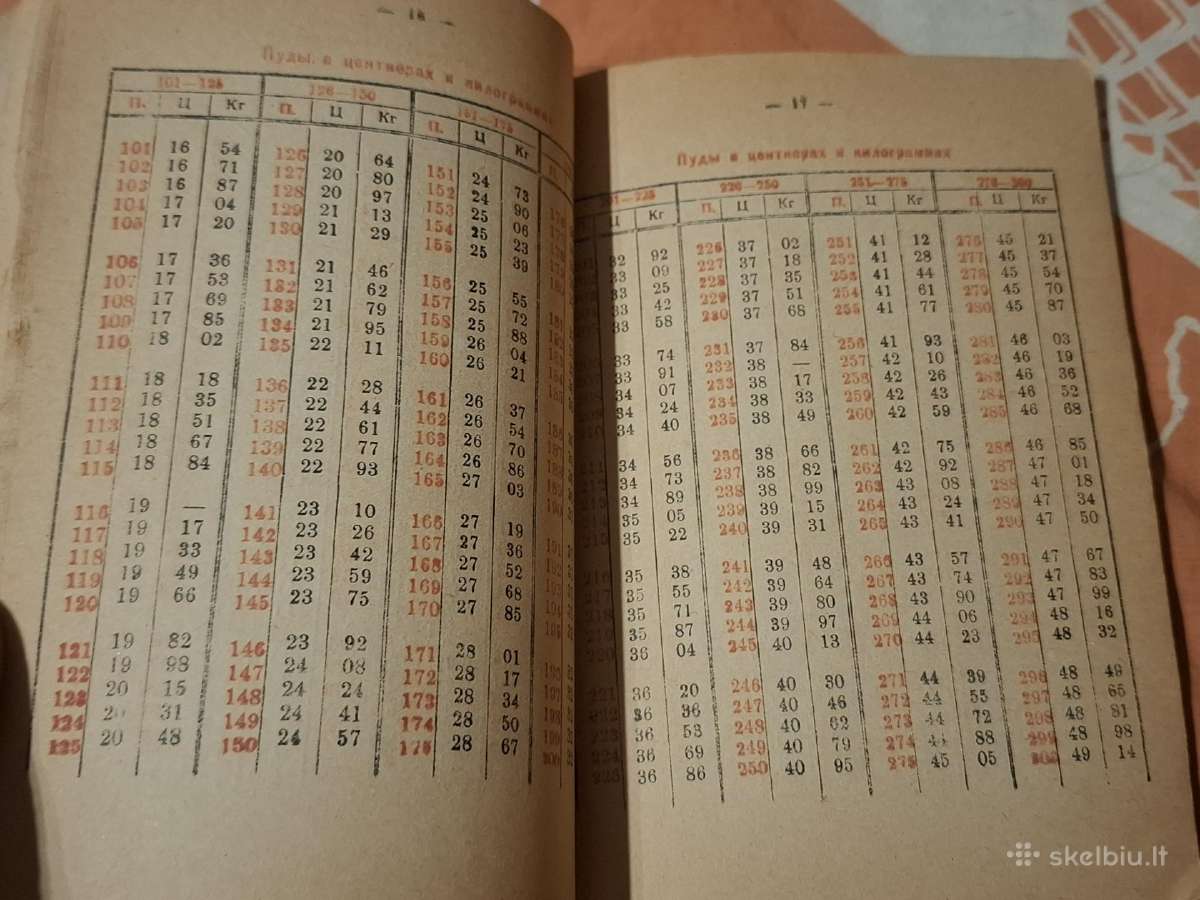 — 18 —
Пуды в центнерах и килограммах
101—125 126—150 151—175
П. Ц Кг П. Ц Кг П. Ц Кг П.
101 16 54 126 20 64 151 24 73
102 16 71 127 20 80 152 24 90
103 16 87 128 20 97 153 25 06
104 17 04 129 21 13 154 25 23
105 17 20 130 21 29 155 25 39
106 17 36 131 21 46 156 25 55
107 17 53 132 21 62 157 25 72
108 17 69 133 21 79 158 25 88
109 17 85 134 21 95 159 26 04
110 18 02 135 22 11 160 26 21
111 18 18 136 22 28 161 26 37
112 18 35 137 22 44 162 26 54
113 18 51 138 22 61 163 26 70
114 18 67 139 22 77 164 26 86
115 18 84 140 22 93 165 27 03
116 19 — 141 23 10 166 27 19
117 19 17 142 23 26 167 27 36
118 19 33 143 23 42 168 27 52
119 19 49 144 23 59 169 27 68
120 19 66 145 23 75 170 27 85
121 19 82 146 23 92 171 28 01
122 19 98 147 24 08 172 28 17
123 20 15 148 24 24 173 28 34
124 20 31 149 24 41 174 28 50
125 20 48 150 24 57 175 28 67
— 19 —
Пуды в центнерах и килограммах
226—250 251—275 276—300
Ц Кг П. Ц Кг П. Ц Кг П. Ц Кг
32 92 226 37 02 251 41 12 276 45 21
33 09 227 37 18 252 41 28 277 45 37
33 25 228 37 35 253 41 44 278 45 54
33 42 229 37 51 254 41 61 279 45 70
33 58 230 37 68 255 41 77 280 45 87
33 74 231 37 84 256 41 93 281 46 03
33 91 232 38 — 257 42 10 282 46 19
34 07 233 38 17 258 42 26 283 46 36
34 24 234 38 33 259 42 43 284 46 52
34 40 235 38 49 260 42 59 285 46 68
34 56 236 38 66 261 42 75 286 46 85
34 73 237 38 82 262 42 92 287 47 01
34 89 238 38 99 263 43 08 288 47 18
35 05 239 39 15 264 43 24 289 47 34
35 22 240 39 31 265 43 41 290 47 50
35 38 241 39 48 266 43 57 291 47 67
35 55 242 39 64 267 43 74 292 47 83
35 71 243 39 80 268 43 90 293 47 99
35 87 244 39 97 269 44 06 294 48 16
36 04 245 40 13 270 44 23 295 48 32
36 20 246 40 30 271 44 39 296 48 49
36 36 247 40 46 272 44 55 297 48 65
36 53 248 40 62 273 44 72 298 48 81
36 69 249 40 79 274 44 88 299 48 98
36 86 250 40 95 275 45 05 300 49 14
skelbiu.lt